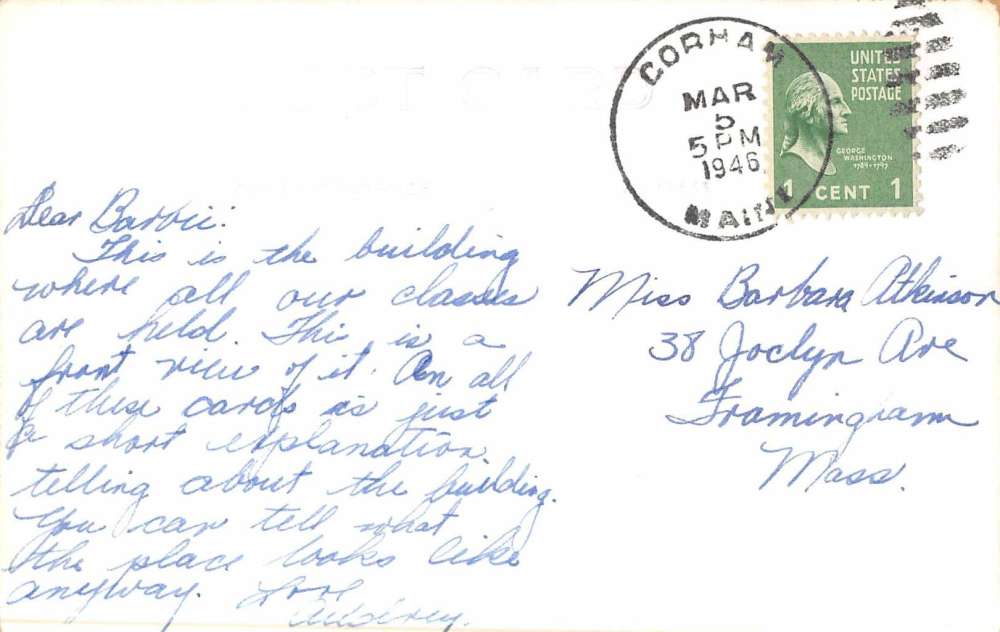 GORHAM
MAR
5
5 PM
1946
MAINE
UNITED
STATES
POSTAGE
GEORGE
WASHINGTON
1789-1797
1 CENT 1
Dear Barbii:
This is the building
where all our classes
are held. This is a
front view of it. On all
of these cards is just
a short explanation
telling about the building.
You can tell what
the place looks like
anyway. Love
Audrey.
Miss Barbara Atkinson
38 Joclyn Ave
Framingham
Mass.